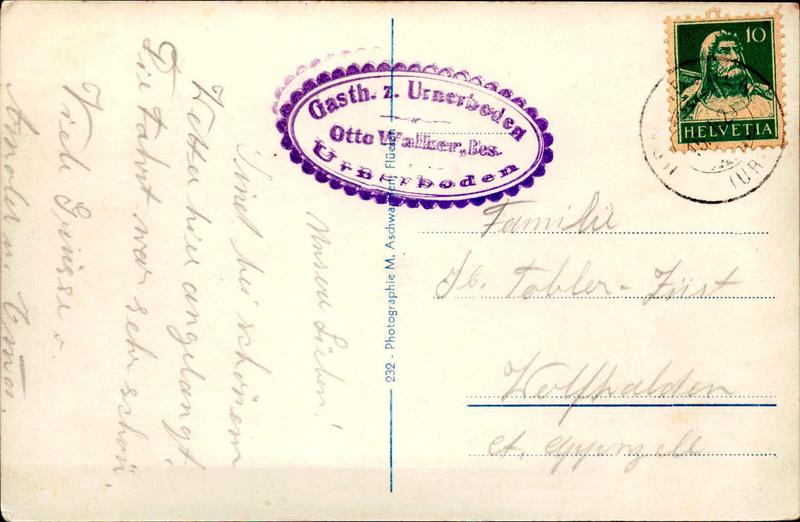 Unsere Lieben!
Sind bei schönem
Wetter hier angelangt.
Die Fahrt war sehr schön.
Viele Grüsse v.
Emma.
Gasth. z. Urnerboden
Otto Walker, Bes.
Urnerboden
232 - Photographie M. Aschwanden, Flüelen
10
HELVETIA
(UR
Familie
Jb. Tobler-Züst
Wolfhalden
Ct. Appenzell